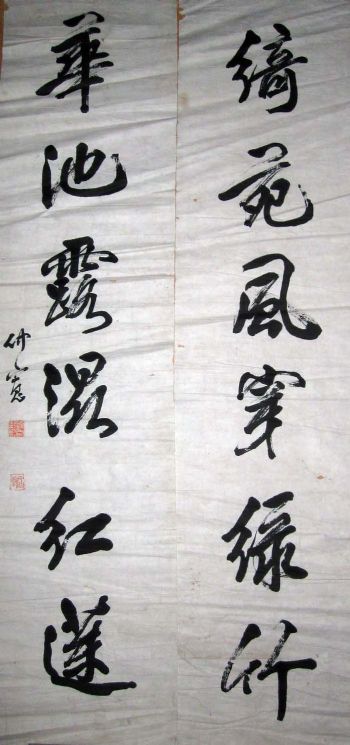 綺苑風穿綠竹
華池露濕紅蓮